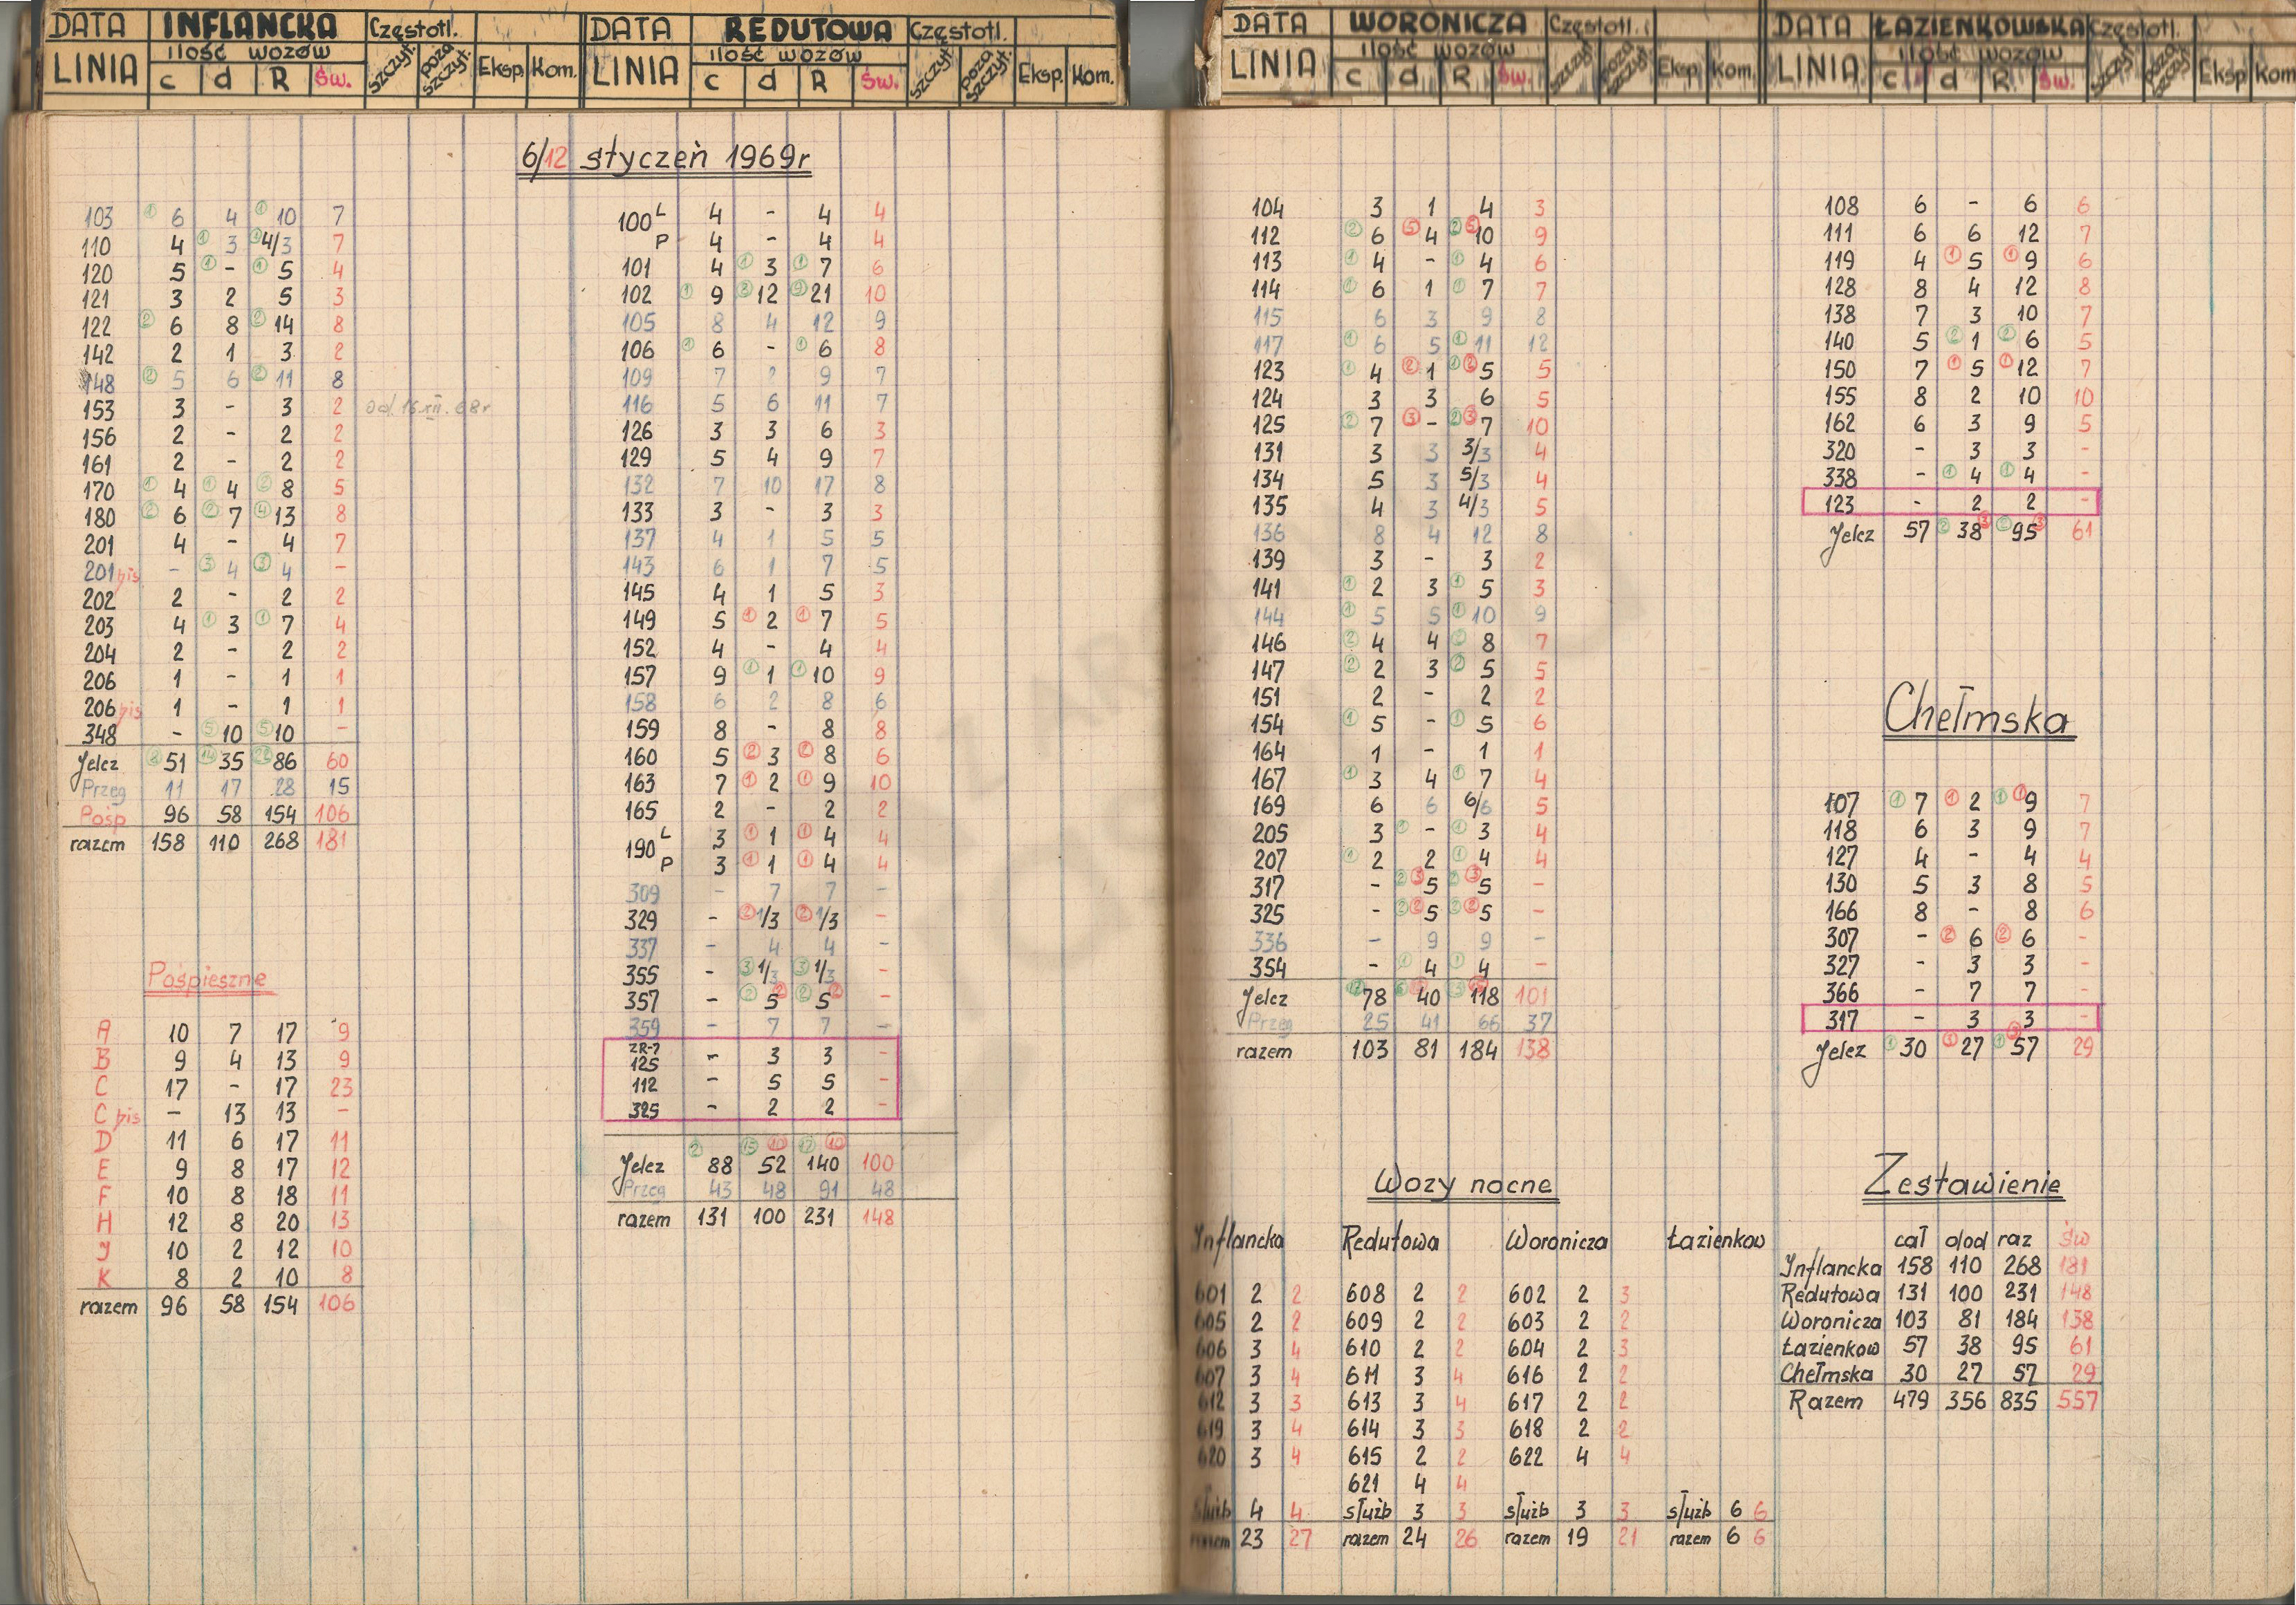 DATA INFLANCKA Częstotl.
LINIA ilość wozów szczyt. poza szczyt. Eksp. Kom.
c d R Św.
DATA REDUTOWA Częstotl.
LINIA ilość wozów szczyt. poza szczyt. Eksp. Kom.
c d R Św.
DATA WORONICZA Częstotl.
LINIA ilość wozów szczyt. poza szczyt. Eksp. Kom.
c d R Św.
DATA ŁAZIENKOWSKA Częstotl.
LINIA ilość wozów szczyt. poza szczyt. Eksp Kom
c d R Św.
6/12 styczeń 1969r
103 ① 6 4 ① 10 7
110 4 ① 3 ① 4/3 7
120 5 ① - ① 5 4
121 3 2 5 3
122 ② 6 8 ② 14 8
142 2 1 3 2
148 ② 5 6 ② 11 8
153 3 - 3 2 od 16.XII.68r
156 2 - 2 2
161 2 - 2 2
170 ① 4 ① 4 ② 8 5
180 ② 6 ② 7 ④ 13 8
201 4 - 4 7
201 bis - ③ 4 ③ 4 -
202 2 - 2 2
203 4 ① 3 ① 7 4
204 2 - 2 2
206 1 - 1 1
206 bis 1 - 1 1
348 - ⑤ 10 ⑤ 10 -
Jelcz ⑧ 51 ⑭ 35 ㉒ 86 60
Przeg 11 17 28 15
Pośp 96 58 154 106
razem 158 110 268 181
Pośpieszne
A 10 7 17 9
B 9 4 13 9
C 17 - 17 23
C bis - 13 13 -
D 11 6 17 11
E 9 8 17 12
F 10 8 18 11
H 12 8 20 13
J 10 2 12 10
K 8 2 10 8
razem 96 58 154 106
100 L 4 - 4 4
P 4 - 4 4
101 4 ① 3 ① 7 6
102 ① 9 ⑧ 12 ⑨ 21 10
105 8 4 12 9
106 ① 6 - ① 6 8
109 7 2 9 7
116 5 6 11 7
126 3 3 6 3
129 5 4 9 7
132 7 10 17 8
133 3 - 3 3
137 4 1 5 5
143 6 1 7 5
145 4 1 5 3
149 5 ① 2 ① 7 5
152 4 - 4 4
157 9 ① 1 ① 10 9
158 6 2 8 6
159 8 - 8 8
160 5 ② 3 ② 8 6
163 7 ① 2 ① 9 10
165 2 - 2 2
190 L 3 ① 1 ① 4 4
P 3 ① 1 ① 4 4
309 - 7 7 -
329 - ② 1/3 ② 1/3 -
337 - 4 4 -
355 - ③ 1/3 ③ 1/3 -
357 - ② 5 ② ② 5 ② -
359 - 7 7 -
ZR-7
125 - 3 3 -
112 - 5 5 -
325 - 2 2 -
② ⑮ ⑩ ⑰ ⑩
Jelcz 88 52 140 100
Przeg 43 48 91 48
razem 131 100 231 148
104 3 1 4 3
112 ② 6 ⑤ 4 ② ⑤ 10 9
113 ① 4 - ① 4 6
114 ① 6 1 ① 7 7
115 6 3 9 8
117 ① 6 5 ① 11 12
123 ① 4 ② 1 ① ② 5 5
124 3 3 6 5
125 ② 7 ③ - ② ③ 7 10
131 3 3 3/3 4
134 5 3 5/3 4
135 4 3 4/3 5
136 8 4 12 8
139 3 - 3 2
141 ① 2 3 ① 5 3
144 ① 5 5 ① 10 9
146 ② 4 4 ② 8 7
147 ② 2 3 ② 5 5
151 2 - 2 2
154 ① 5 - ① 5 6
164 1 - 1 1
167 ① 3 4 ① 7 4
169 6 6 6/6 5
205 3 ① - ① 3 4
207 ① 2 2 ① 4 4
317 - ② ③ 5 ② ③ 5 -
325 - ② ② 5 ② ② 5 -
336 - 9 9 -
354 - ① 4 ① 4 -
Jelcz 78 40 118 101
Przeg 25 41 66 37
razem 103 81 184 138
108 6 - 6 6
111 6 6 12 7
119 4 ① 5 ① 9 6
128 8 4 12 8
138 7 3 10 7
140 5 ② 1 ② 6 5
150 7 ① 5 ① 12 7
155 8 2 10 10
162 6 3 9 5
320 - 3 3 -
338 - ① 4 ① 4 -
123 - 2 2 -
Jelcz 57 38 ③ 95 ③ 61
Chełmska
107 ① 7 ① 2 ① ① 9 7
118 6 3 9 7
127 4 - 4 4
130 5 3 8 5
166 8 - 8 6
307 - ② 6 ② 6 -
327 - 3 3 -
366 - 7 7 -
317 - 3 3 -
Jelcz ① 30 ③ 27 ① ③ 57 29
Wozy nocne
Inflancka Redutowa Woronicza Łazienkow
601 2 2 608 2 2 602 2 3
605 2 2 609 2 2 603 2 2
606 3 4 610 2 2 604 2 3
607 3 4 611 3 4 616 2 2
612 3 3 613 3 4 617 2 2
619 3 4 614 3 3 618 2 2
620 3 4 615 2 2 622 4 4
621 4 4
służb 4 4 służb 3 3 służb 3 3 służb 6 6
razem 23 27 razem 24 26 razem 19 21 razem 6 6
Zestawienie
cał dod raz św
Inflancka 158 110 268 181
Redutowa 131 100 231 148
Woronicza 103 81 184 138
Łazienkow 57 38 95 61
Chełmska 30 27 57 29
Razem 479 356 835 557